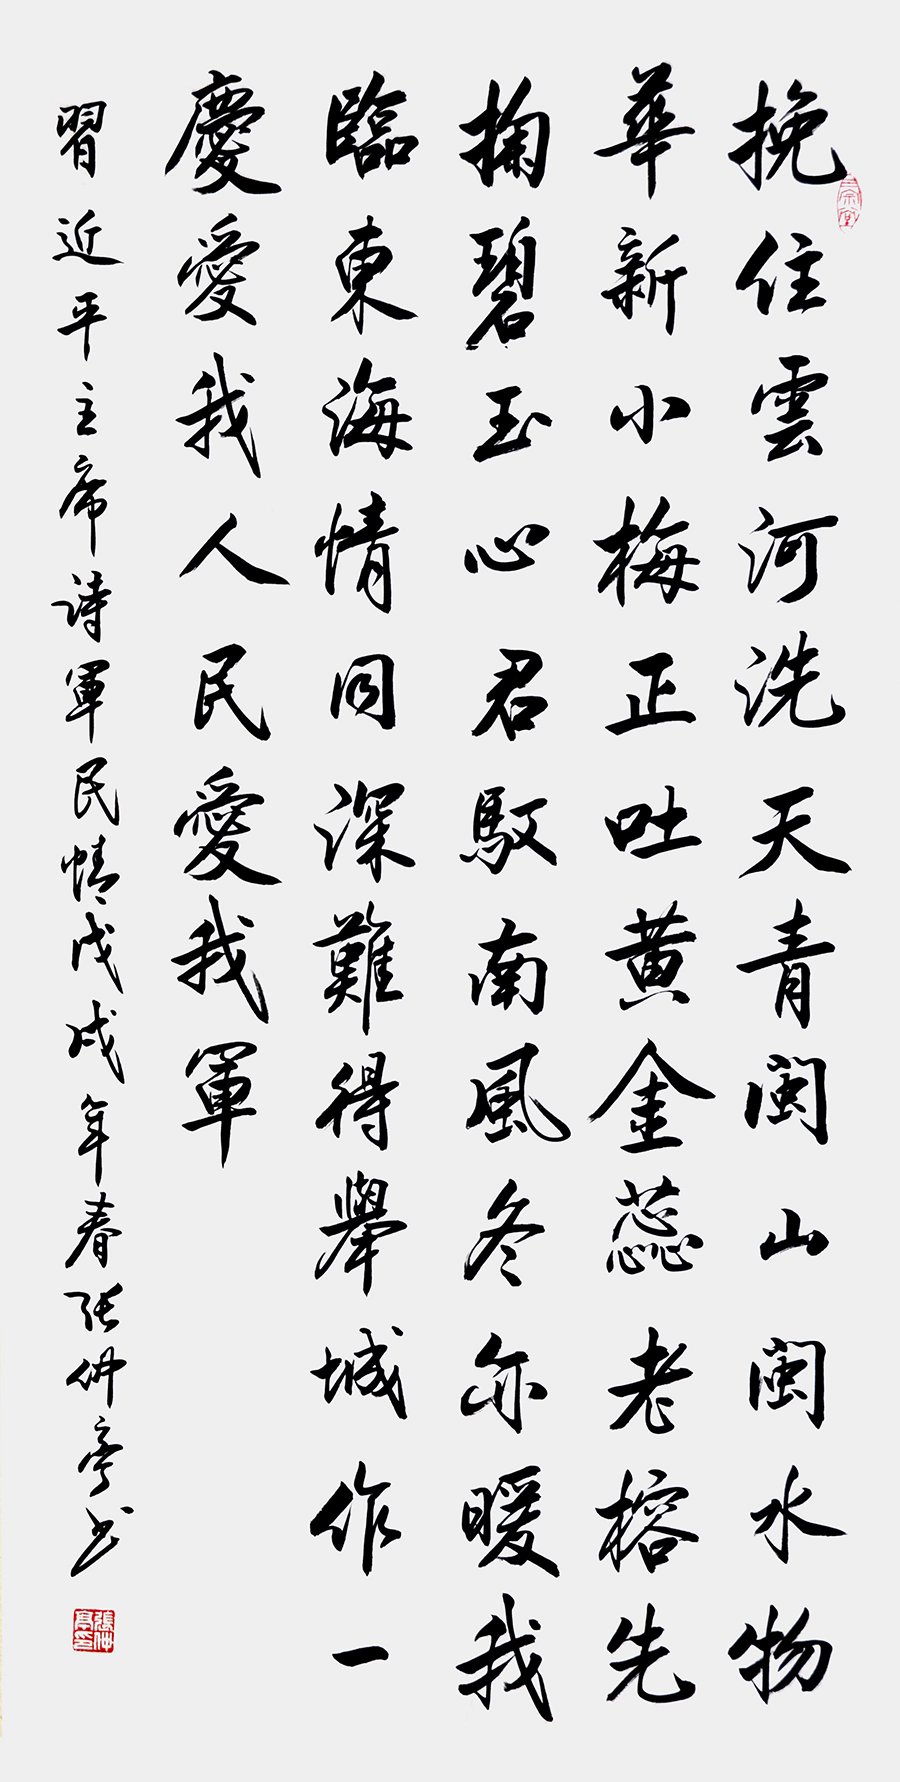 挽住雲河洗天青閩山閩水物
華新小梅正吐黄金蕊老榕先
掬碧玉心君馭南風冬亦暖我
臨東海情同深難得舉城作一
慶愛我人民愛我軍
習近平主席詩軍民情戊戌年春張仲亭书
張仲亭印